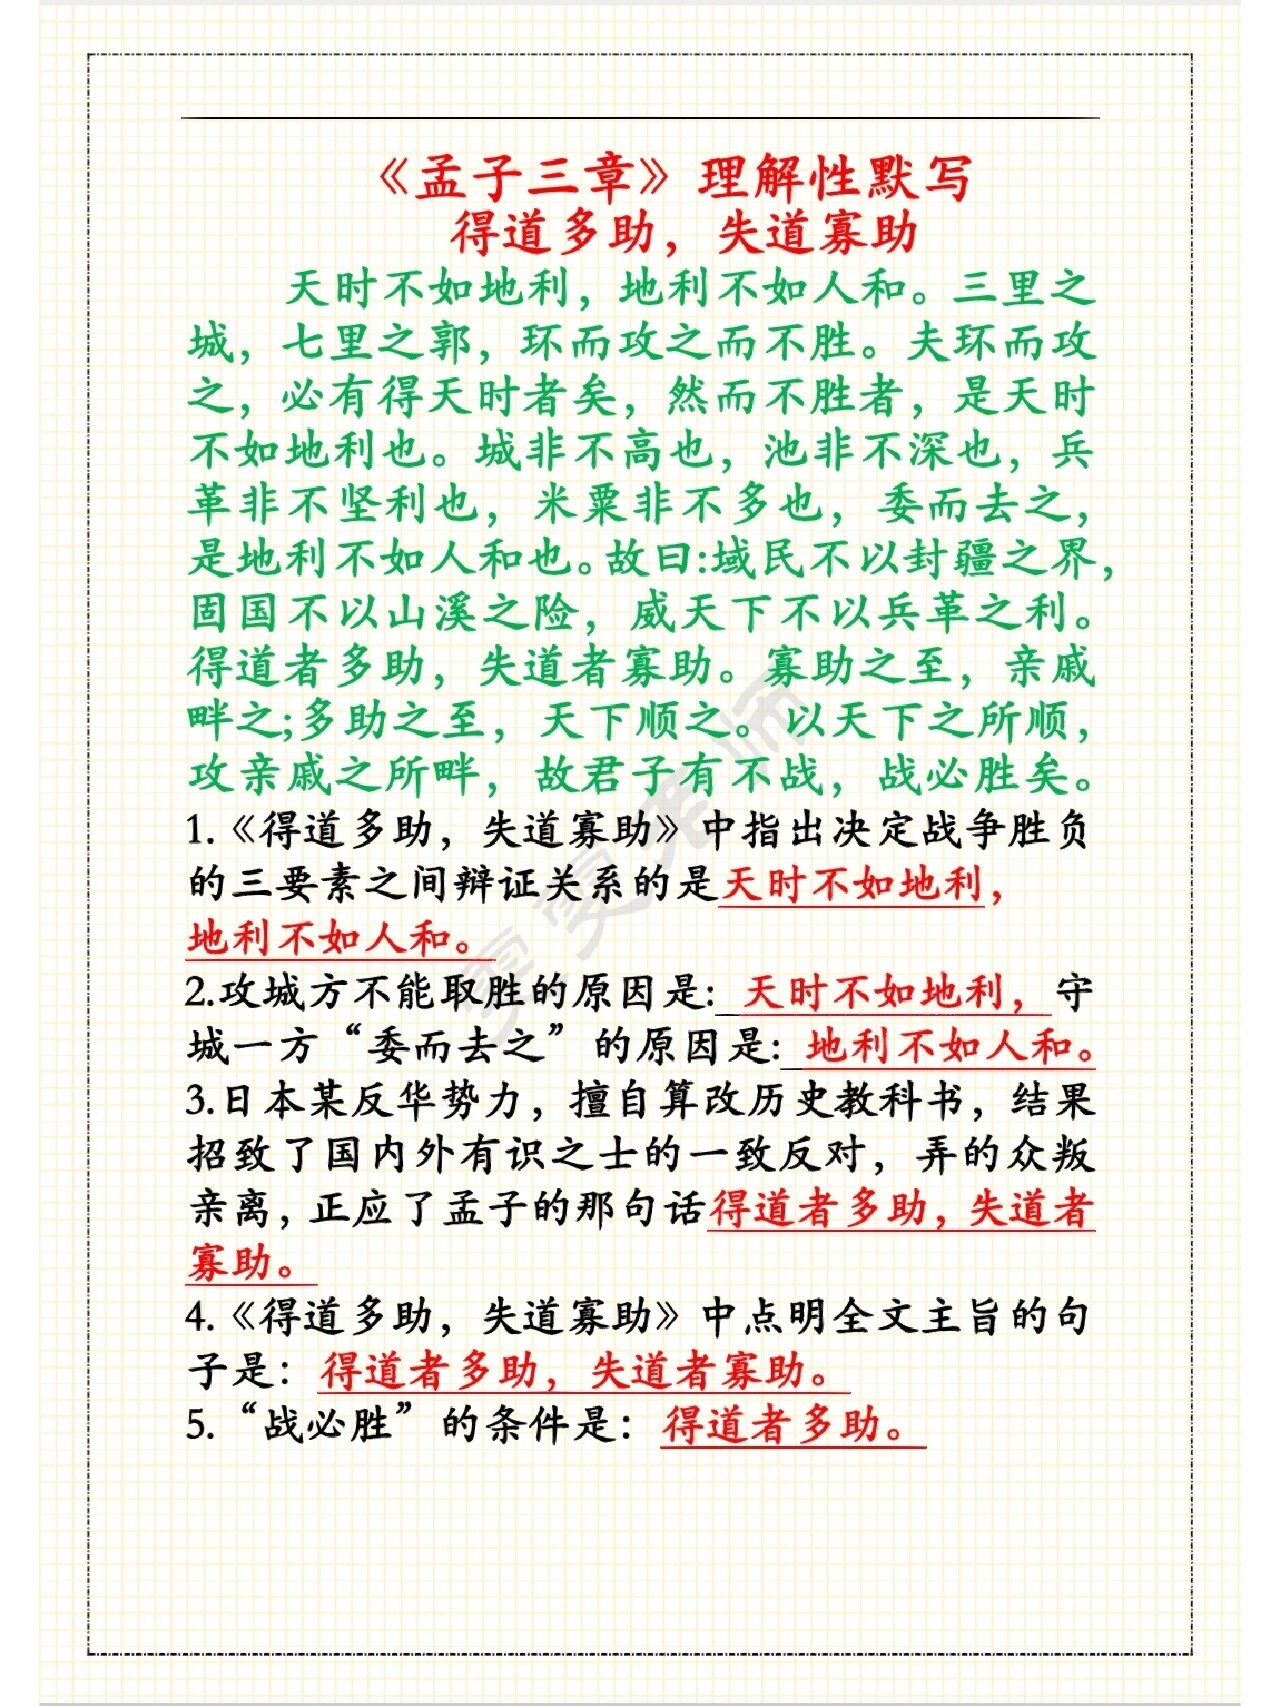 《孟子三章》理解性默写
得道多助，失道寡助
天时不如地利，地利不如人和。三里之
城，七里之郭，环而攻之而不胜。夫环而攻
之，必有得天时者矣，然而不胜者，是天时
不如地利也。城非不高也，池非不深也，兵
革非不坚利也，米粟非不多也，委而去之，
是地利不如人和也。故曰:域民不以封疆之界，
固国不以山溪之险，威天下不以兵革之利。
得道者多助，失道者寡助。寡助之至，亲戚
畔之;多助之至，天下顺之。以天下之所顺，
攻亲戚之所畔，故君子有不战，战必胜矣。
1.《得道多助，失道寡助》中指出决定战争胜负
的三要素之间辩证关系的是天时不如地利，
地利不如人和。
2.攻城方不能取胜的原因是: 天时不如地利，守
城一方“委而去之”的原因是: 地利不如人和。
3.日本某反华势力，擅自算改历史教科书，结果
招致了国内外有识之士的一致反对，弄的众叛
亲离，正应了孟子的那句话得道者多助，失道者
寡助。
4.《得道多助，失道寡助》中点明全文主旨的句
子是：得道者多助，失道者寡助。
5.“战必胜”的条件是：得道者多助。
雯雯老师